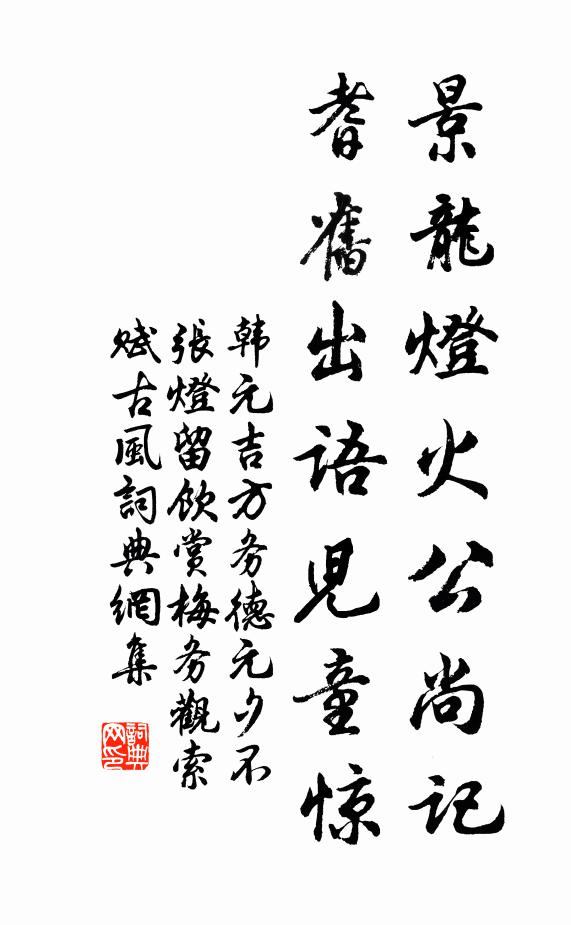 景龍燈火公尚记
耆舊出語児童惊
韩元吉方务德元夕不
張燈留飲赏梅务觀索
赋古風詞典網集
詞典网印